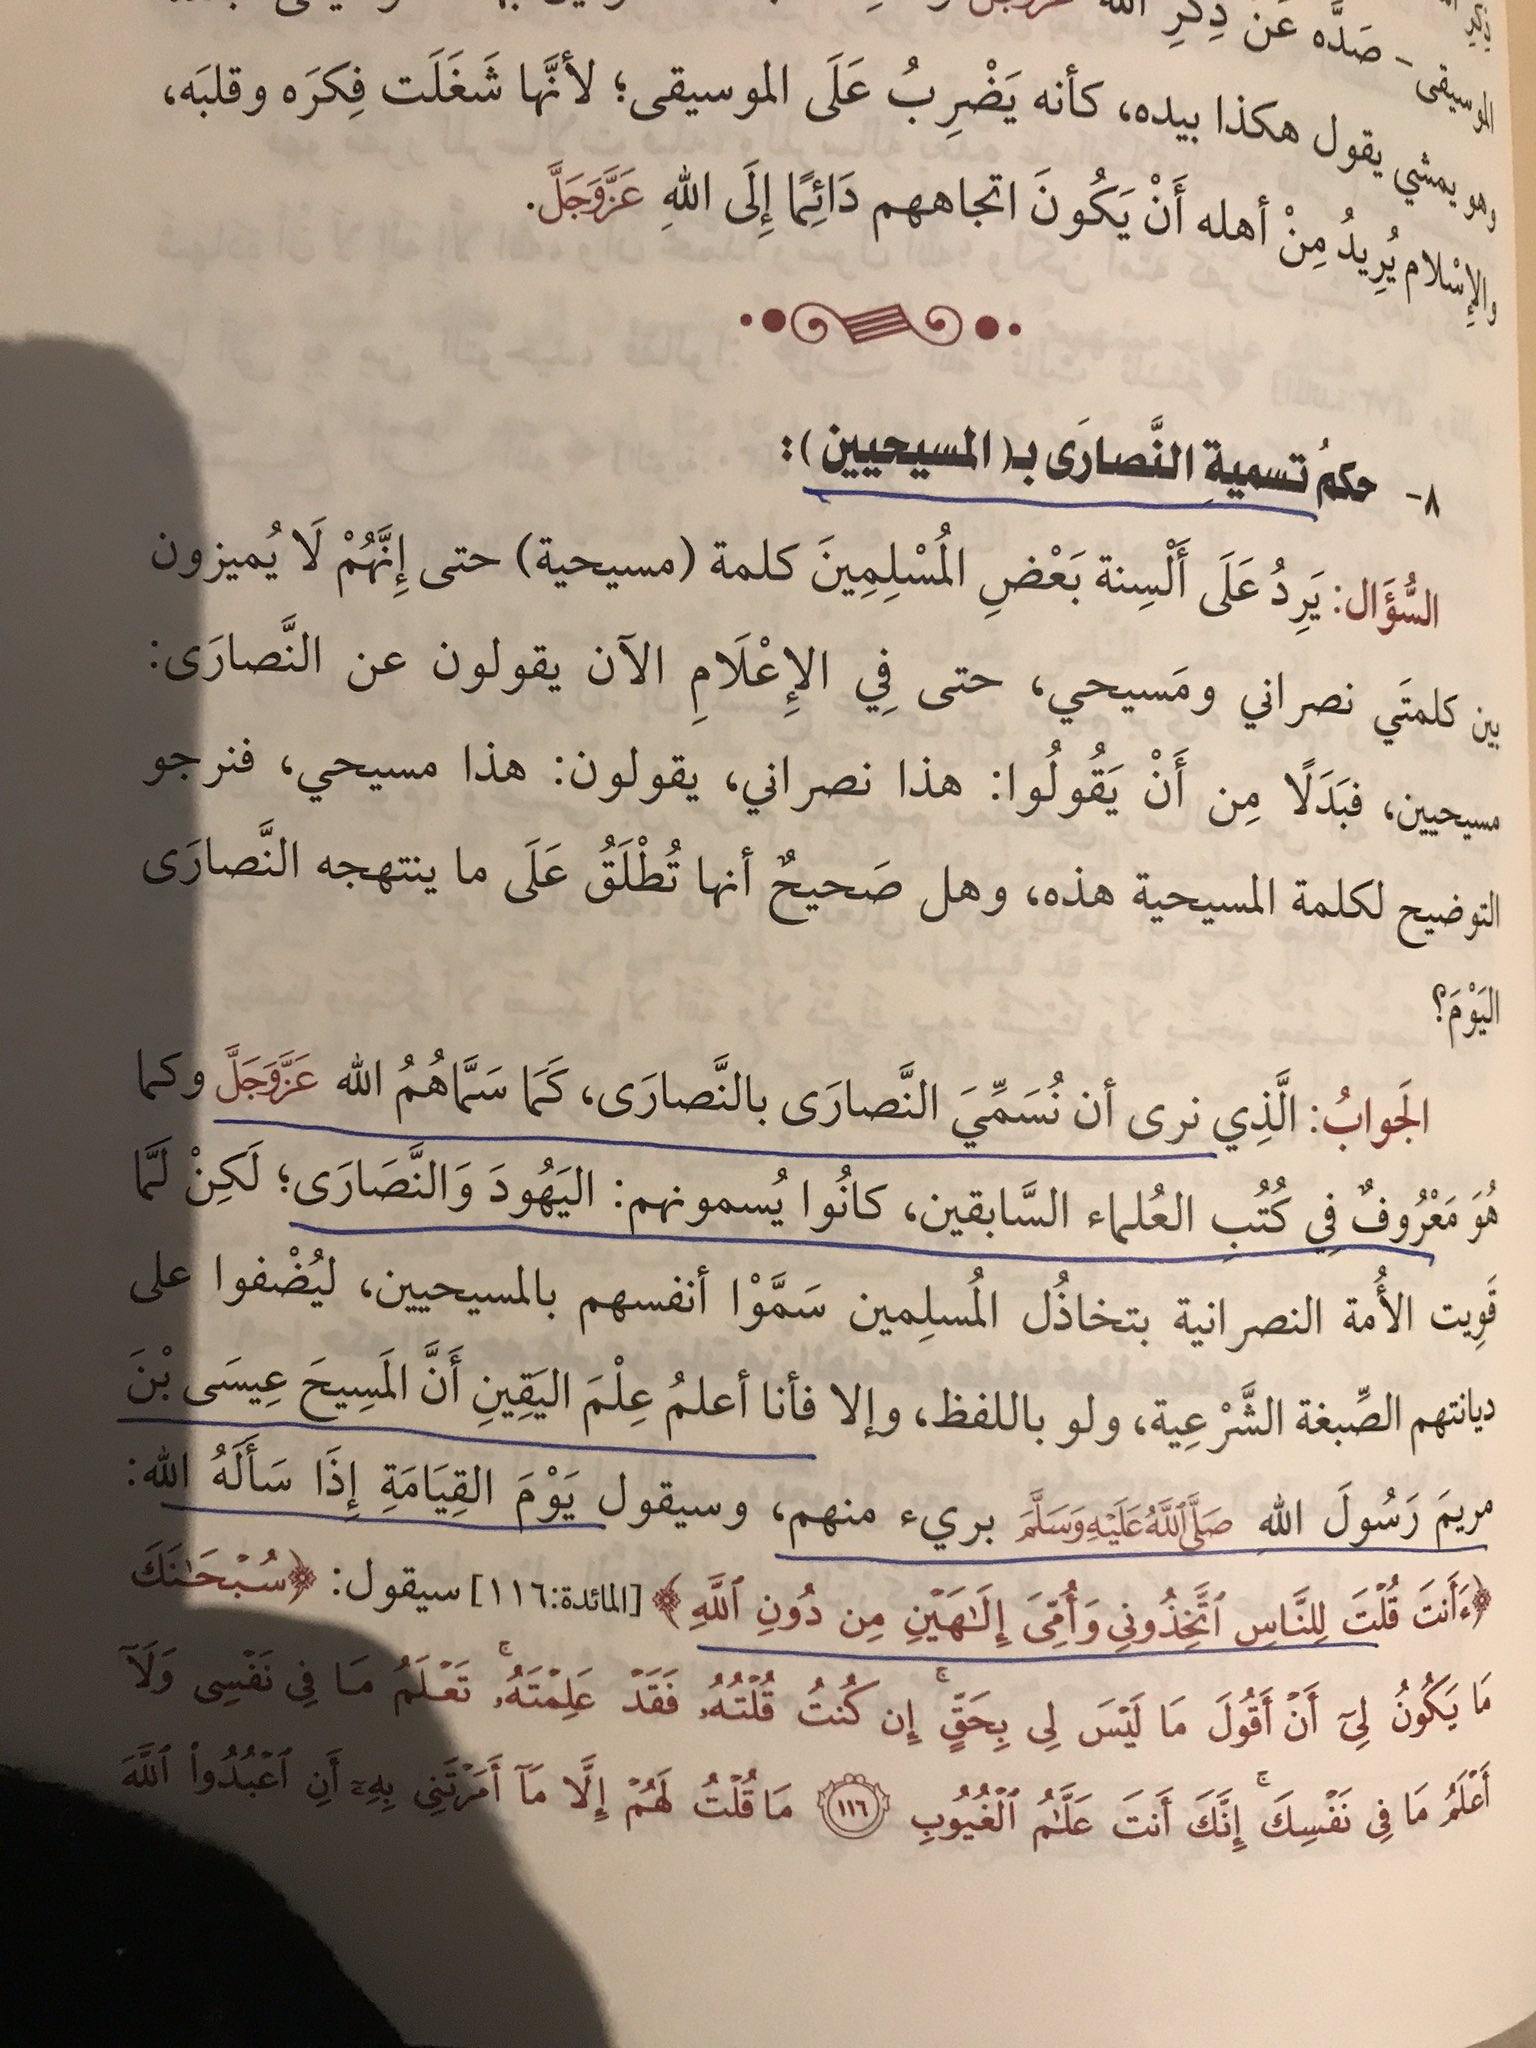 صَدَّه عَنْ ذِكْرِ الله عَزَّوَجَلَّ
الموسيقى-
وهو يمشي يقول هكذا بيده، كأنه يَضْرِبُ عَلَى الموسيقى؛ لأنَّها شَغَلَت فِكرَه وقلبَه،
والإِسْلام يُرِيدُ مِنْ أهله أَنْ يَكُونَ اتجاههم دَائِمًا إِلَى اللهِ عَزَّوَجَلَّ.
٨- حكمُ تسميةِ النَّصارَى بـ(المسيحيين):
السُّؤَال: يَرِدُ عَلَى أَلْسِنة بَعْضِ المُسْلِمِينَ كلمة (مسيحية) حتى إِنَّهُمْ لَا يُميزون
بين كلمتَي نصراني ومَسيحي، حتى فِي الإِعْلَامِ الآن يقولون عن النَّصارَى:
مسيحيين، فبَدَلًا مِن أَنْ يَقُولُوا: هذا نصراني، يقولون: هذا مسيحي، فنرجو
التوضيح لكلمة المسيحية هذه، وهل صَحيحٌ أنها تُطْلَقُ عَلَى ما ينتهجه النَّصارَى
اليَوْمَ؟
الجَوابُ: الَّذِي نرى أن نُسَمِّيَ النَّصارَى بالنَّصارَى، كَمَا سَمَّاهُمُ الله عَزَّوَجَلَّ وكما
هُوَ مَعْرُوفٌ فِي كُتُبِ العُلماء السَّابقين، كانُوا يُسمونهم: اليَهُودَ وَالنَّصَارَى؛ لَكِنْ لَمَّا
قَوِيت الأُمة النصرانية بتخاذُل المُسلِمين سَمَّوْا أنفسهم بالمسيحيين، ليُضْفوا على
ديانتهم الصِّبغة الشَّرْعِية، ولو باللفظ، وإلا فأنا أعلمُ عِلْمَ اليَقِينِ أَنَّ المَسِيحَ عِيسَى بْنَ
مريمَ رَسُولَ اللهِ صَلَّى اللَّهُ عَلَيْهِ وَسَلَّمَ بريء منهم، وسيقول يَوْمَ القِيَامَةِ إِذَا سَأَلَهُ الله:
﴿ءَأَنتَ قُلْتَ لِلنَّاسِ ٱتَّخِذُونِي وَأُمِّيَ إِلَٰهَيْنِ مِن دُونِ ٱللَّهِ﴾ [المائدة:١١٦] سيقول: ﴿سُبْحَٰنَكَ
مَا يَكُونُ لِيٓ أَنْ أَقُولَ مَا لَيْسَ لِي بِحَقٍّ ۚ إِن كُنتُ قُلْتُهُۥ فَقَدْ عَلِمْتَهُۥ ۚ تَعْلَمُ مَا فِي نَفْسِي وَلَآ
أَعْلَمُ مَا فِي نَفْسِكَ ۚ إِنَّكَ أَنتَ عَلَّٰمُ ٱلْغُيُوبِ ١١٦ مَا قُلْتُ لَهُمْ إِلَّا مَآ أَمَرْتَنِي بِهِۦٓ أَنِ ٱعْبُدُوا۟ ٱللَّهَ